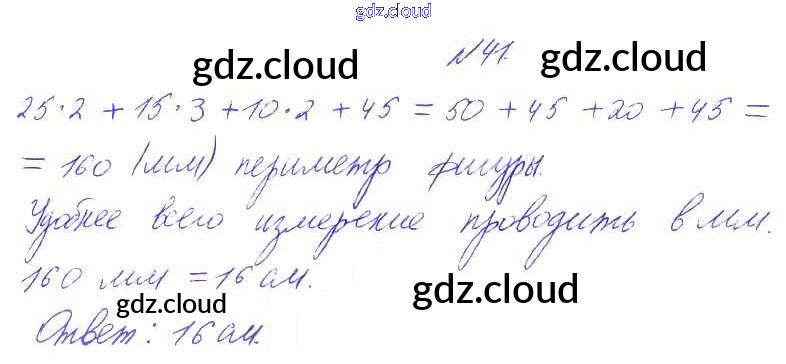 gdz.cloud
gdz.cloud №41. gdz.cloud
25·2 + 15·3 + 10·2 + 45 = 50 + 45 + 20 + 45 =
= 160 (мм) периметр фигуры.
Удобнее всего измерение проводить в мм.
160 мм = 16 см.
gdz.cloud gdz.cloud
Ответ: 16 см.